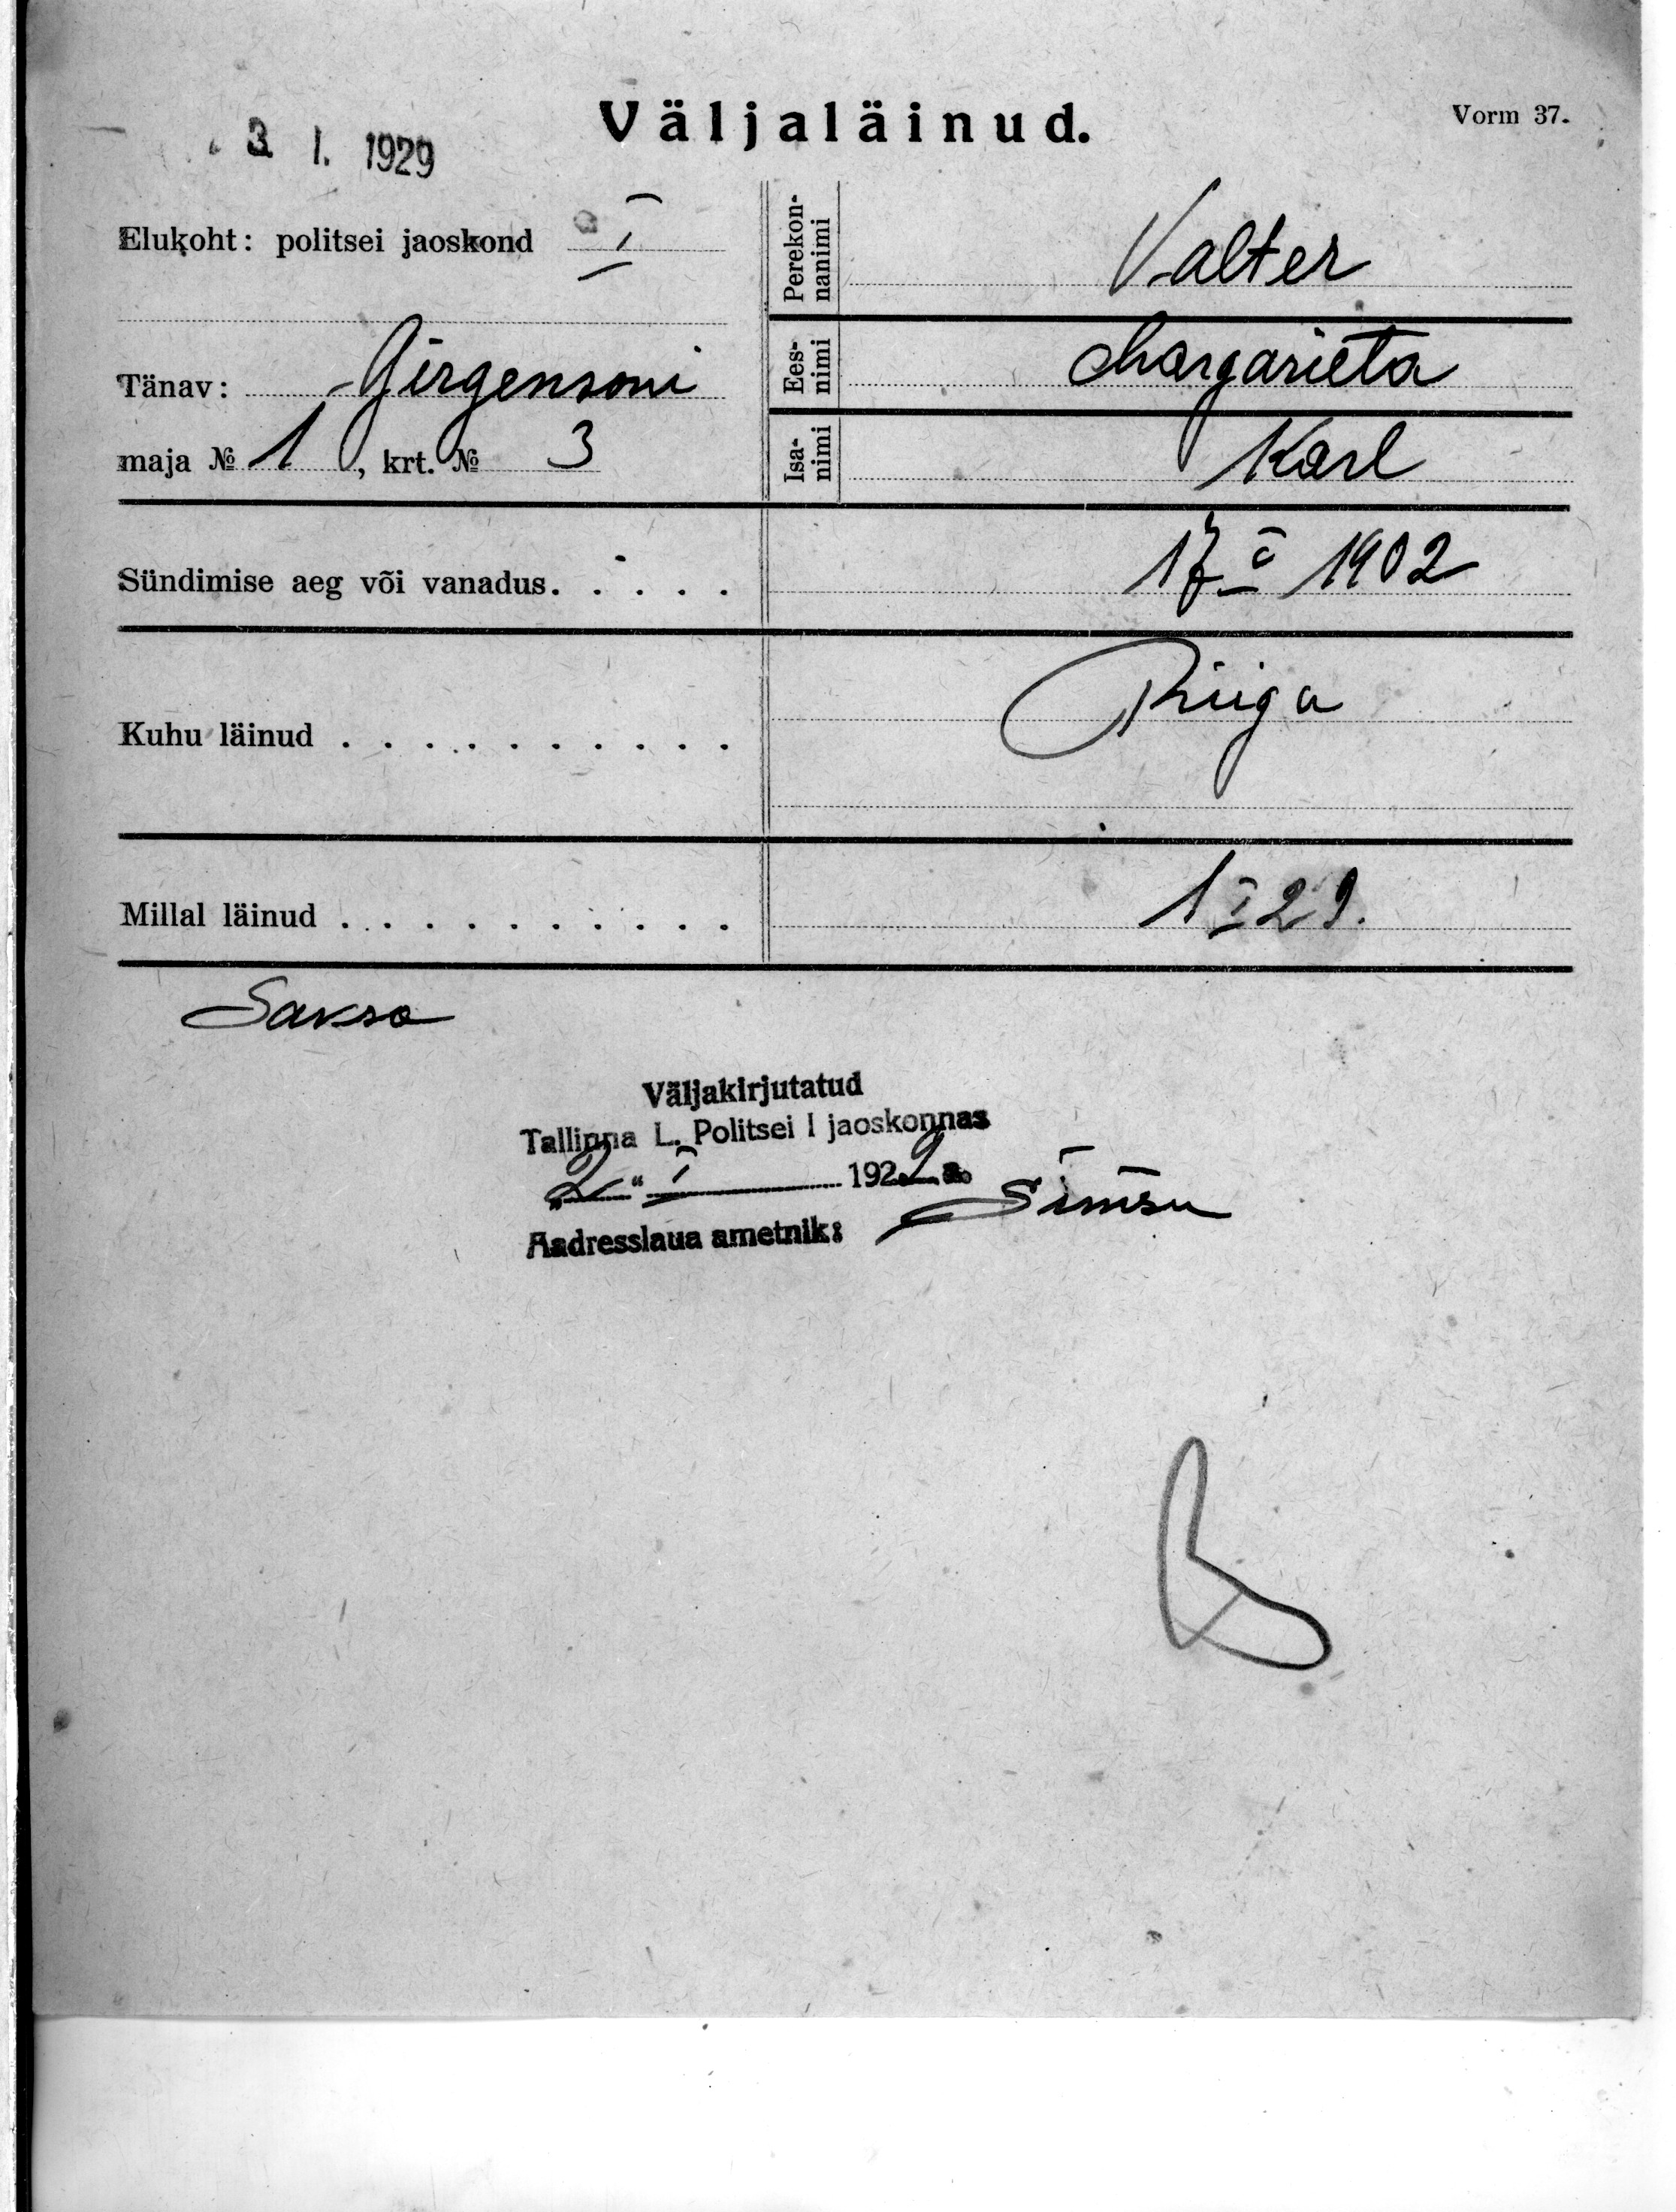 Väljaläinud.
Vorm 37.
3. I. 1929
Elukoht: politsei jaoskond I
Tänav: Girgensoni
maja № 1, krt. № 3
Perekon-
nanimi
Valter
Ees-
nimi
Margarieta
Isa-
nimi
Karl
Sündimise aeg või vanadus. . . . .
17 1902
Kuhu läinud . . . . . . . . . .
Riiga
Millal läinud . . . . . . . . . .
1 I 29.
Saksa
Väljakirjutatud
Tallinna L. Politsei I jaoskonnas
„2“ I 1929 a.
Aadresslaua ametnik: